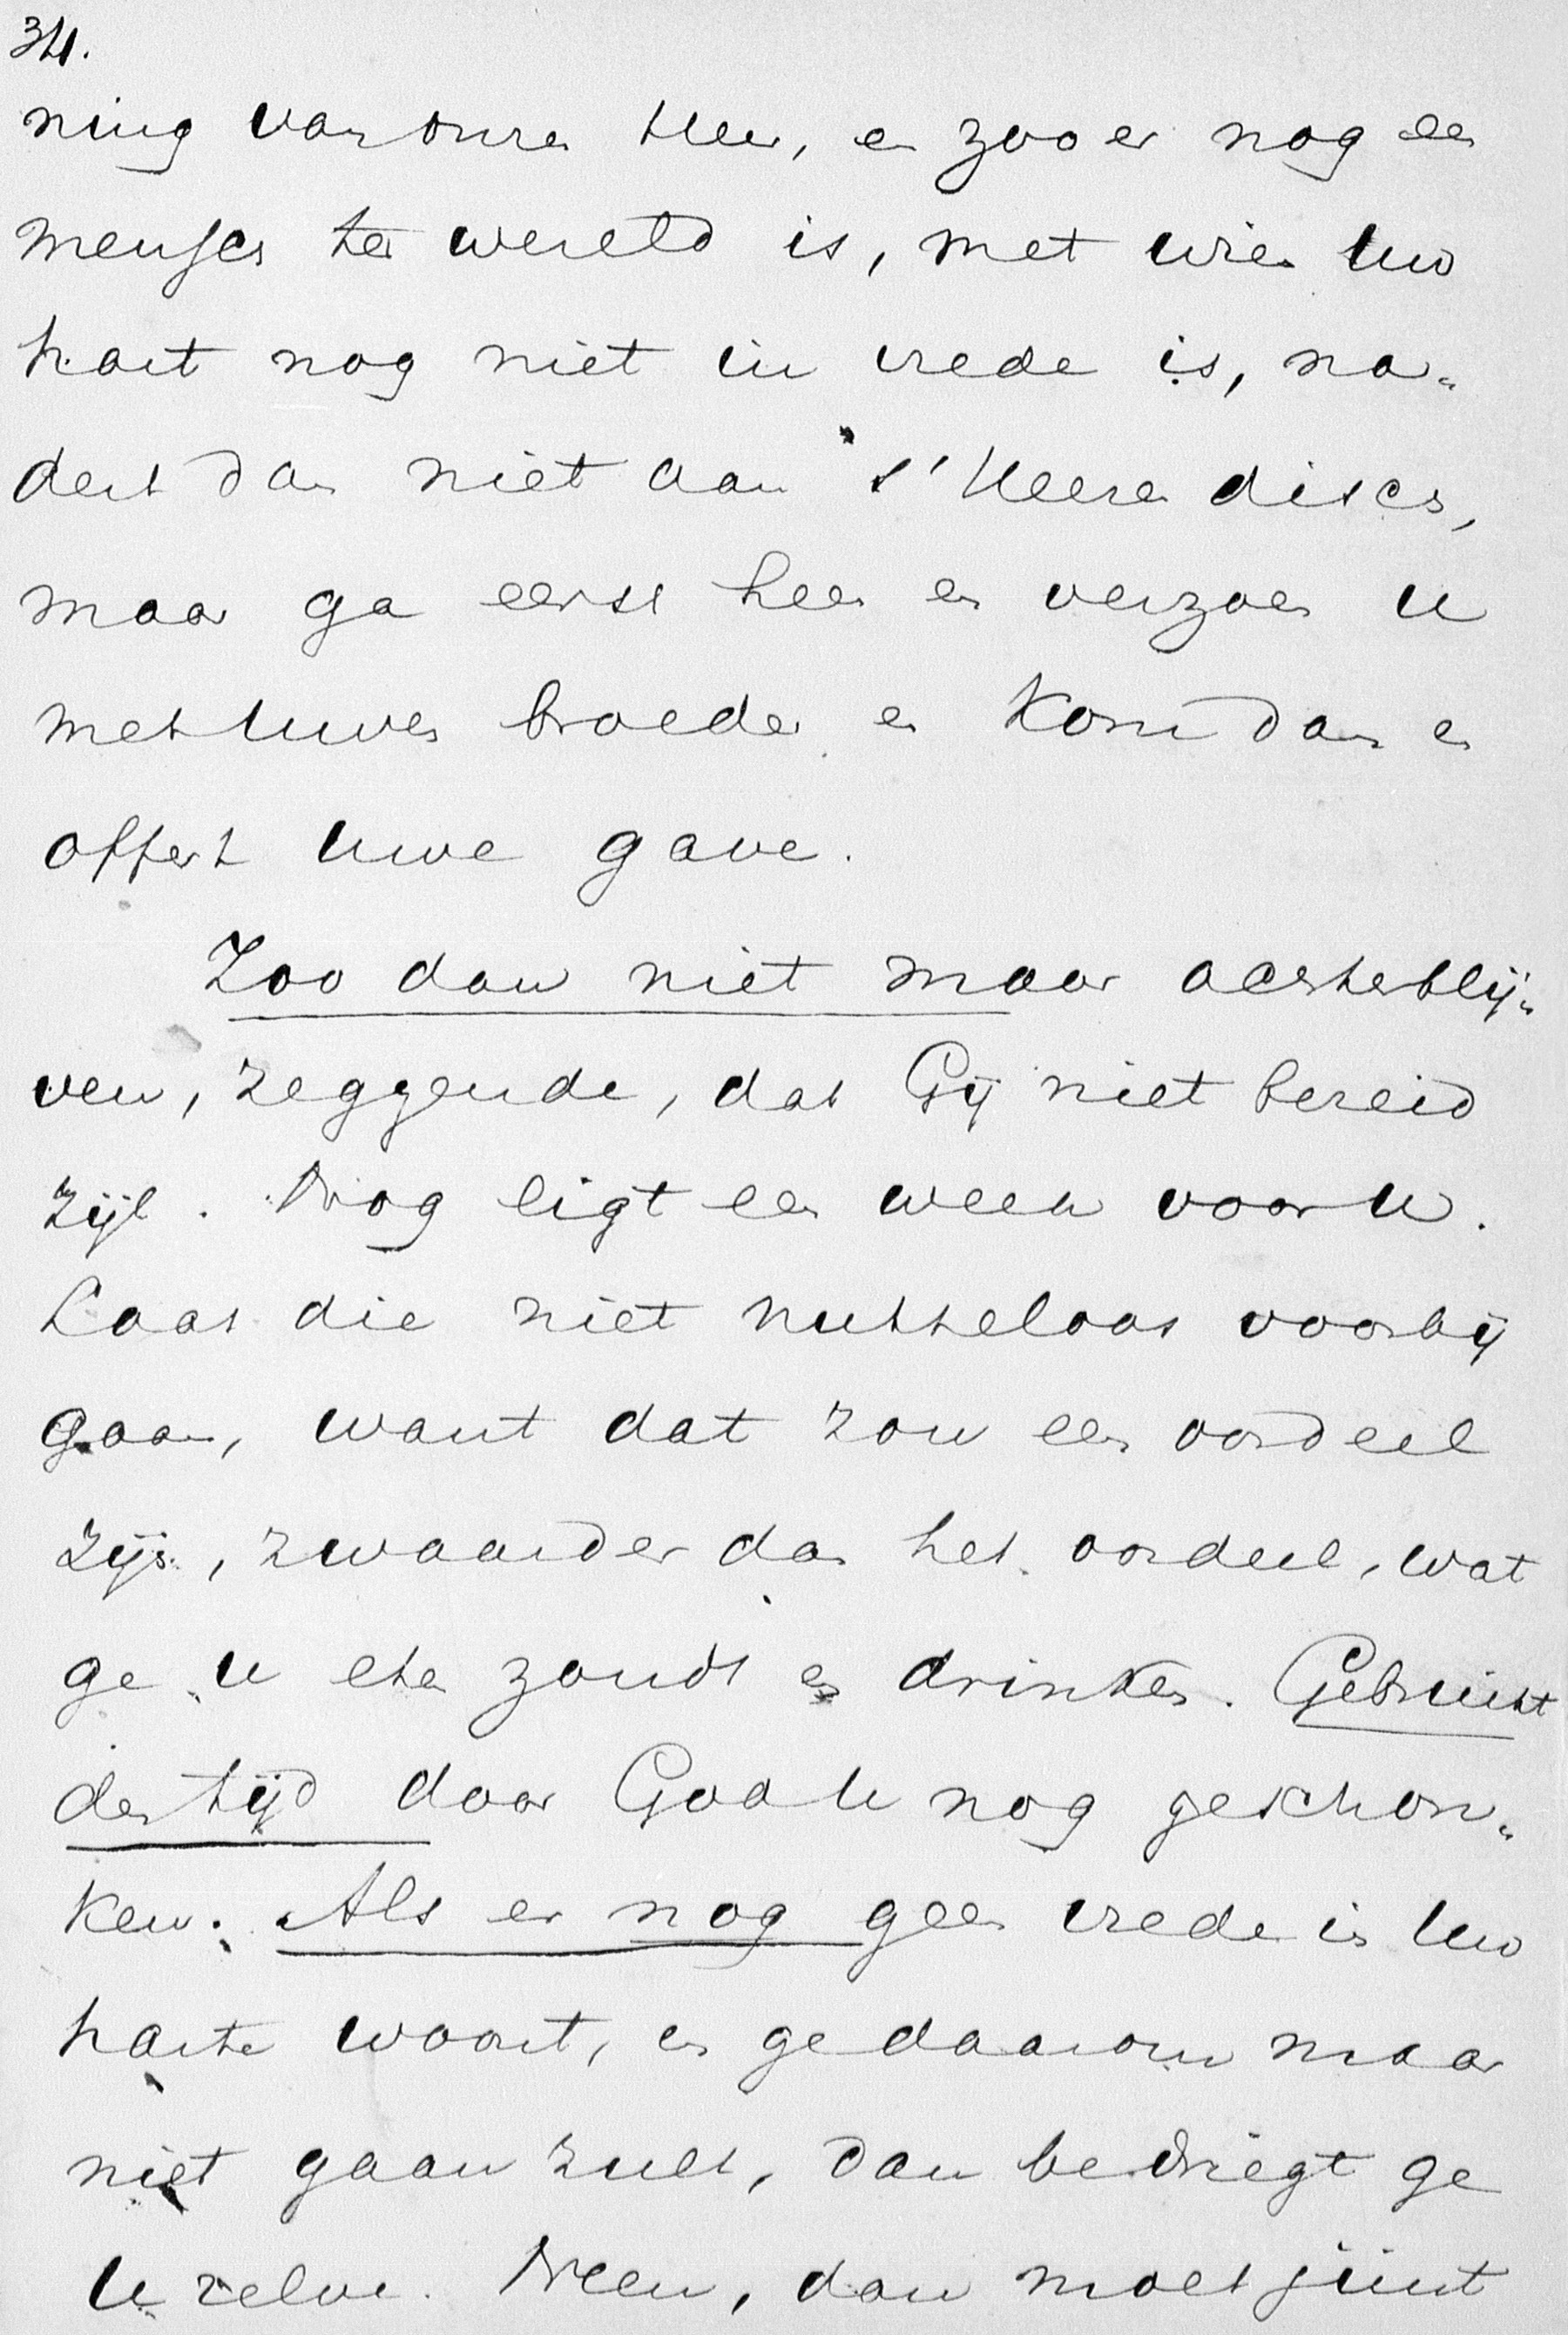 34.
ning van onzen Heer, en zoo er nog een
mensch ter wereld is, met wien Uw
hart nog niet in vrede is, na-
dert dan niet aan 's' Heeren disch,
maar ga eerst heen en verzoen U
met Uwen broeder en kom dan en
offert Uwe gave.
Zoo dan niet maar achterblij-
ven, zeggende, dat Gij niet bereid
zijt. Nog ligt een week voor U.
Laat die niet nutteloos voorbij
gaan, want dat zou een oordeel
zijn, zwaarder dan het oordeel, wat
ge U eten zoudt en drinken. Gebruikt
den tijd door God U nog geschon-
ken. Als er nog geen vrede in Uw
harte woont, en ge daarom maar
niet gaan zult, dan bedriegt ge
U zelve. Neen, dan moet juist